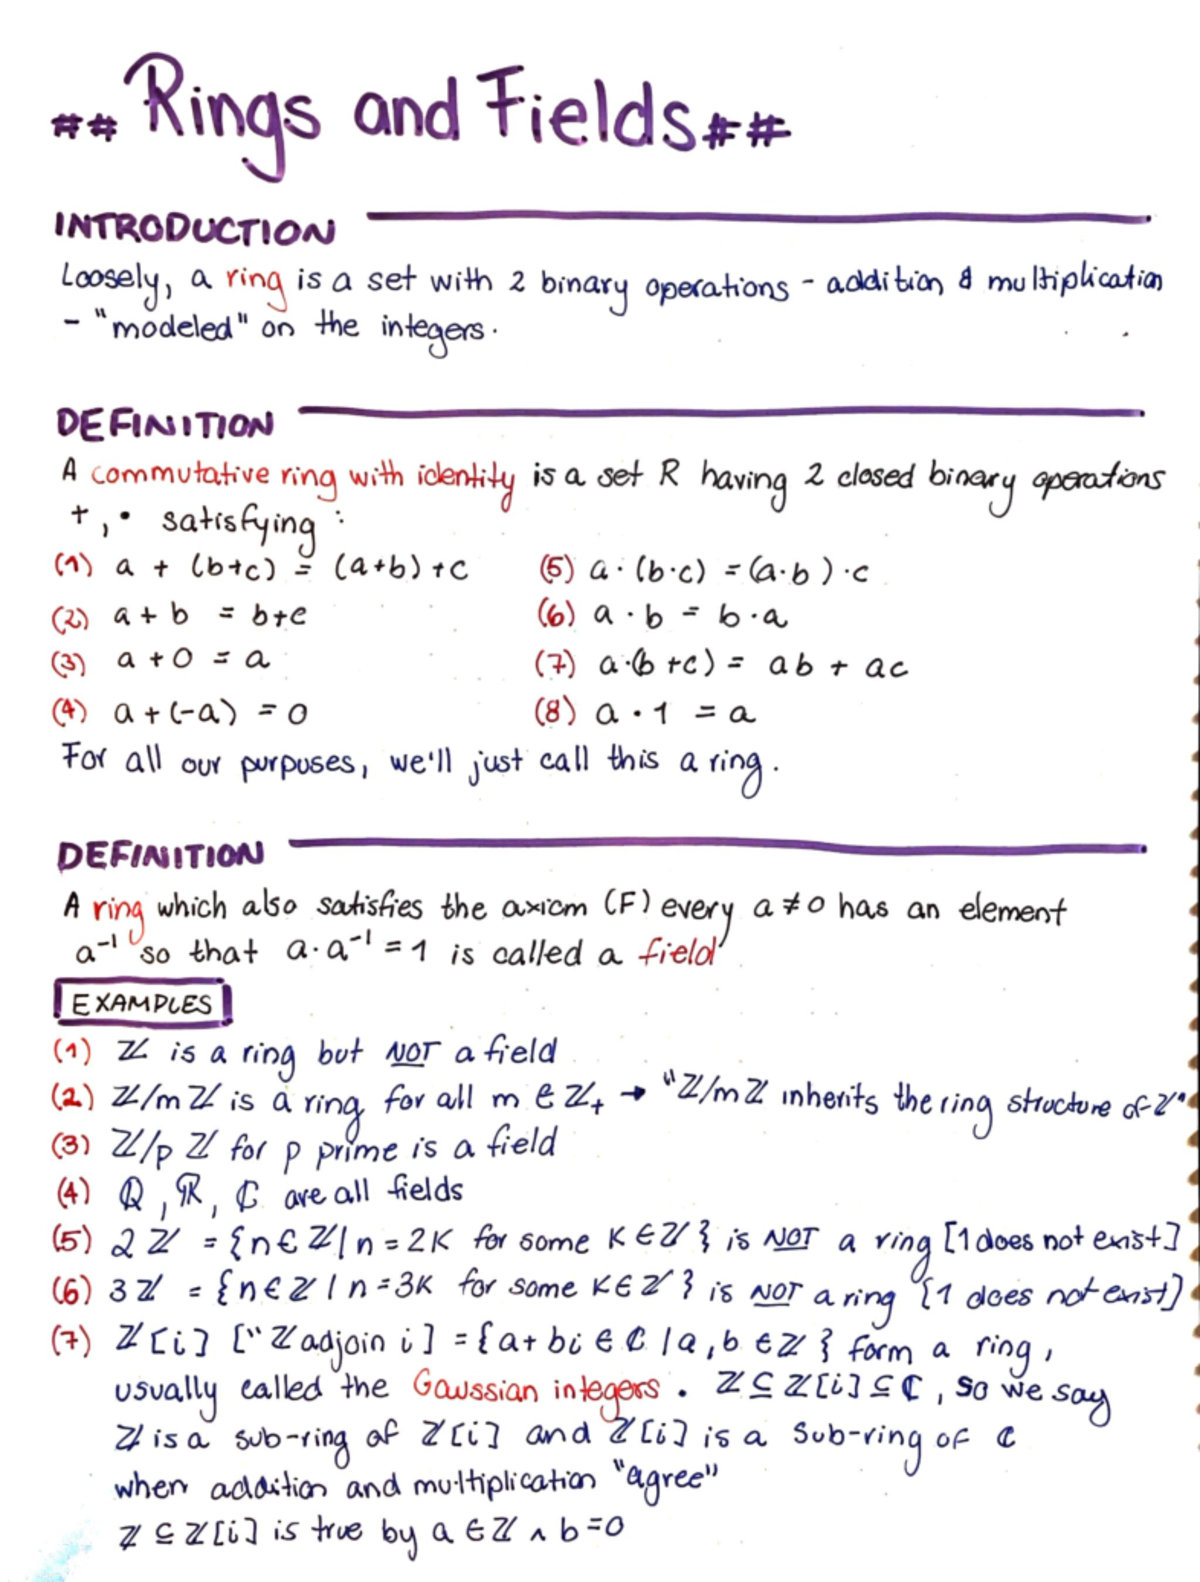 ## Rings and Fields ##
INTRODUCTION
Loosely, a ring is a set with 2 binary operations - addition & multiplication
- "modeled" on the integers.
DEFINITION
A commutative ring with identity is a set R having 2 closed binary operations
+, • satisfying :
(1) a + (b+c) = (a+b)+c (5) a·(b·c) = (a·b)·c
(2) a + b = b+e (6) a · b = b·a
(3) a + 0 = a (7) a·(b+c) = ab + ac
(4) a+(-a) = 0 (8) a · 1 = a
For all our purpuses, we'll just call this a ring.
DEFINITION
A ring which also satisfies the axiom (F) every a≠0 has an element
a⁻¹ so that a·a⁻¹ = 1 is called a field
EXAMPLES
(1) ℤ is a ring but NOT a field
(2) ℤ/mℤ is a ring for all m ∈ ℤ₊ → "ℤ/mℤ inherits the ring structure of ℤ"
(3) ℤ/pℤ for p prime is a field
(4) ℚ, ℝ, ℂ are all fields
(5) 2ℤ = {n∈ℤ| n = 2K for some K∈ℤ} is NOT a ring [1 does not exist]
(6) 3ℤ = {n∈ℤ | n = 3K for some K∈ℤ} is NOT a ring [1 does not exist]
(7) ℤ[i] ["ℤ adjoin i] = {a+bi ∈ ℂ | a,b ∈ℤ} form a ring,
usually called the Gaussian integers. ℤ⊆ℤ[i]⊆ℂ, so we say
ℤ is a sub-ring of ℤ[i] and ℤ[i] is a sub-ring of ℂ
when addition and multiplication "agree"
ℤ⊆ℤ[i] is true by a∈ℤ ∧ b=0